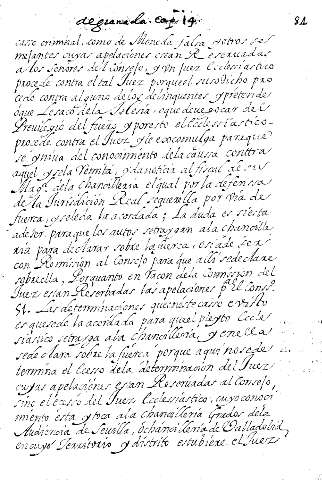 de granada. Cap. 14. 81
casso criminal, como de Moneda falsa, y otros se
mejantes cuyas apelaciones estan Reservadas
a los señores del Consejo, y un Juez Ecclesiastico
procede contra el tal Juez porque el susodicho pro
cedio contra alguno de los delinquentes, y pretende
que de la Iglesia, o que deve gozar del
Previlegio del fuero, y por esto el Ecclesiastico
procede contra el Juez, y le excomulga para que
se yniva del conocimiento de la causa contra
aquel, y se la Remita, y da noticia al fiscal de su
Magd. de la Chancilleria el qual por la defenssa
de la Jurisdicion Real se querella por via de
fuerza, y se le da la acordada; La duda es si esta
a de ser para que los autos se traygan a la Chancille
ria para declarar sobre la fuerza, o si a de ser
con Remission al Consejo para que alli se declare
sobre ella, Porquanto en Raçon de la Comission del
Juez estan Reserbadas las apelaciones pa. El Consº.
51. Las determinaciones que en este casso e visto
es que se de la acordada para que el pleyto Eccle
siastico se trayga a la Chancilleria, y en ella
se declara sobre la fuerza porque aqui no se de
termina el Ecesso de la determinacion del Juez
cuyas apelaciones estan Reservadas al Consejo,
sino el ecesso del Juez Ecclesiastico, cuyo conoci
miento esta, y toca a la Chancilleria Grados de la
Audiencia de Sevilla, o chancilleria de Valladolid
en cuyo Territorio, y distrito estubiere el Juez